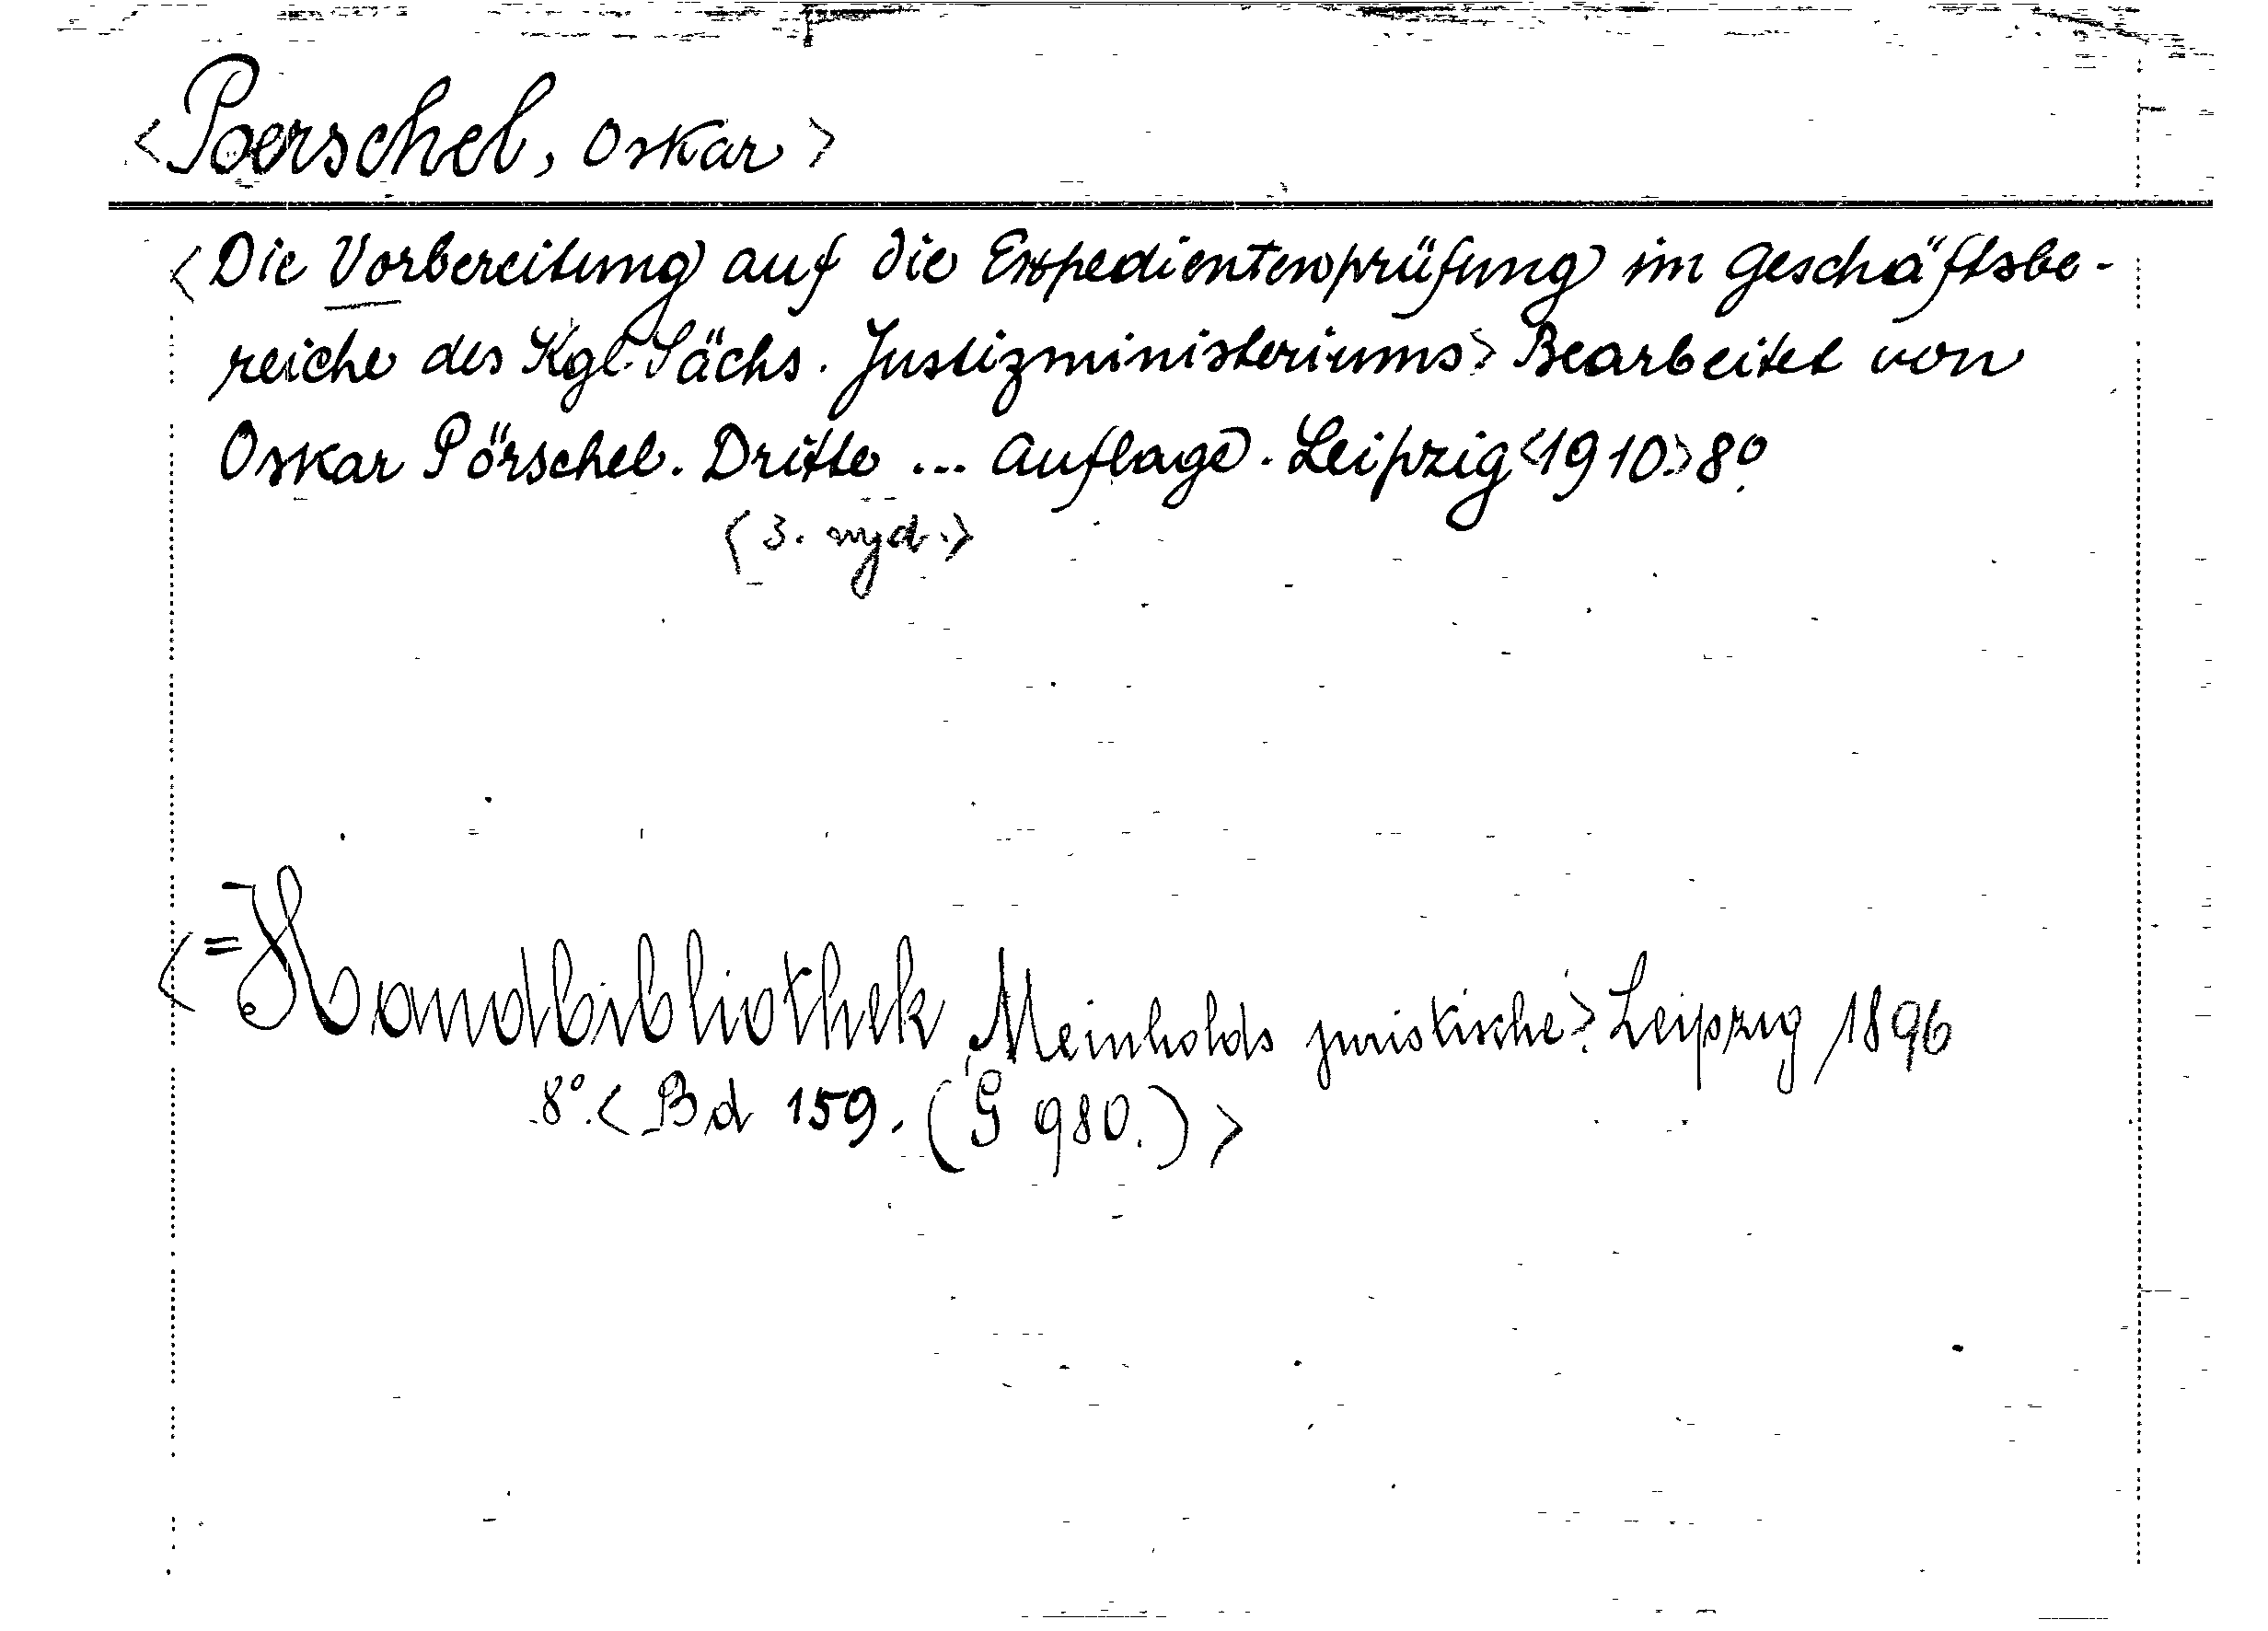 <Poerschel, Oskar>
<Die Vorbereitung auf die Expedientenprüfung im Geschäftsbe-
reiche des Kgl. Sächs. Justizministeriums> Bearbeitet von
Oskar Pörschel. Dritte ... Auflage. Leipzig <1910.> 8°.
<3. wyd.>
<=Handbibliothek, Meinholds juristische> Leipzig 1896
8°. <Bd 159. (G 980.)>